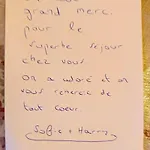 grand merci
pour le
superbe séjour
chez vous.
On a adoré et on
vous remercie de
tout coeur.
Sofie + Harry